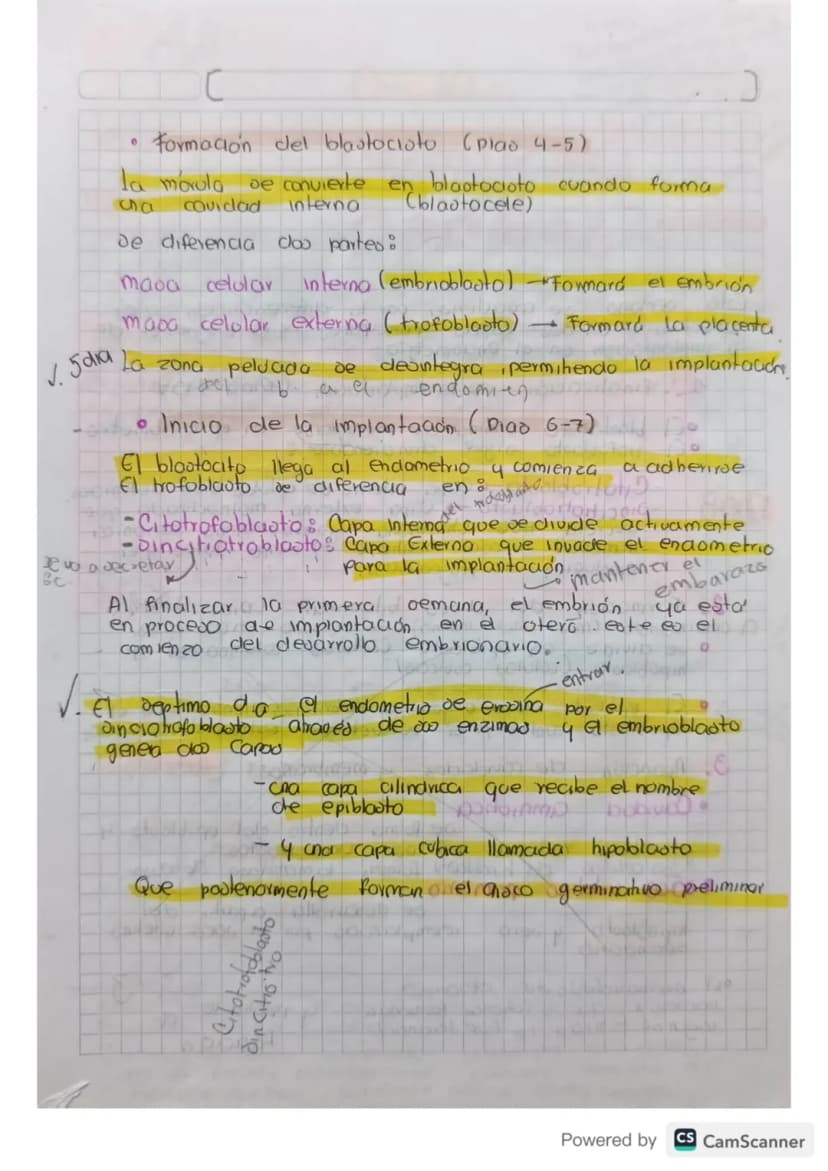 • Formación del blastocisto (Dias 4-5)
la mórula se convierte en blastocisto cuando forma
una cavidad interna (blastocele)
se diferencia dos partes:
masa celular interna (embrioblasto) → Formará el embrión
masa celular externa (trofoblasto) → Formará la placenta
√. 5 dia La zona pelucada se desintegra, permitiendo la implantación
a el endomten
• Inicio de la implantación (Dias 6-7)
El blastocito llega al endometrio y comienza a adherirse
El trofoblasto se diferencia en:
del trofoblasto
- Citotrofoblasto: Capa interna que se divide activamente
- Sincitiotroblasto: Capa Externa que invade el endometrio
para la implantación
se va a secretar
mantener el
embarazo
Al finalizar la primera semana, el embrión ya esta
en proceso de implantación en el utero. este es el
comienzo del desarrollo embrionario.
entrar.
√. El septimo dia el endometrio se erosina por el
sinciotrofoblasto atraves de sus enzimas y el embrioblasto
genera dos capas
- una capa cilindrica que recibe el nombre
de epiblasto
- y una capa cubica llamada hipoblasto
Que posteriormente forman el disco germinativo preliminar
Citotrofoblasto
Powered by CS CamScanner